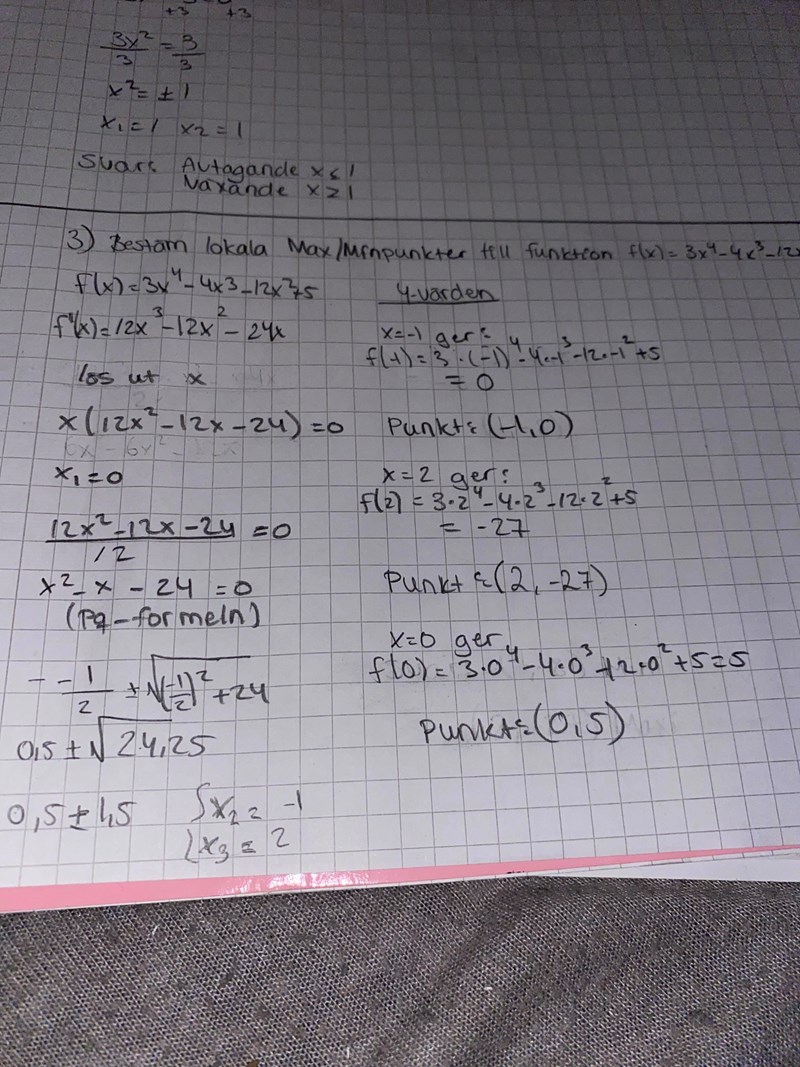 +3 +3
3x²/3 = 3/3
x² = ± 1
x₁ = 1 x₂ = 1
Svar: Avtagande x ≤ 1
Vaxande x ≥ 1
3) Bestam lokala Max/Minpunkter till funktion f(x) = 3x⁴ - 4x³ - 12x
f(x) = 3x⁴ - 4x3 - 12x²+5
f'(x) = 12x³ - 12x² - 24x
los ut x
x(12x² - 12x - 24) = 0
x₁ = 0
12x² - 12x - 24 / 12 = 0
x² - x - 24 = 0
(Pq-formeln)
- -1/2 ± √(-1/2)² + 24
0,5 ± √24,25
0,5 ± 1,5 { x₂ = -1
x₃ = 2
Y-varden
x = -1 ger:
f(-1) = 3·(-1)⁴ - 4·-1³ - 12·-1² + 5
= 0
Punkt: (-1,0)
x = 2 ger:
f(2) = 3·2⁴ - 4·2³ - 12·2² + 5
= -27
Punkt: (2, -27)
x = 0 ger
f(0) = 3·0⁴ - 4·0³ - 12·0² + 5 = 5
Punkt: (0,5)